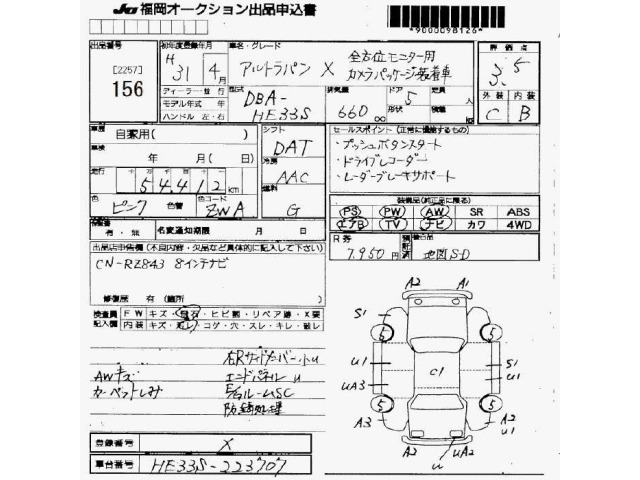 JU 福岡オークション出品申込書
*9000098126*
出品番号
[2257]
156
初年度登録年月
H 31年 4月
車名・グレード
アルトラパン X 全方位モニター用
カメラパッケージ装着車
評価点
3.5
外装 内装
C B
ディーラー・並行
モデル年式 年
ハンドル 左・右
型式
DBA-
HE33S
排気量
660 cc
ドア 5
形状
定員
人
車歴
自家用( )
車検
年 月 日
走行
54412km
色
ピンク
色替
色コード
ZWA
シフト
DAT
冷房
AAC
燃料
G
セールスポイント(正常に機能するもの)
・プッシュボタンスタート
・ドライブレコーダー
・レーダーブレーキサポート
装備品(純正品に限る)
PS PW AW SR ABS
エアB TV ナビ カワ 4WD
有・無
名変通知期限 月 日
R券
7,950円
地図SD
出品店申告欄(不良内容・欠品など具体的に記入して下さい)
CN-RZ843 8インチナビ
修復歴 有(箇所 )
検査員
記入欄
FW キズ・飛石・ヒビ割・リペア跡・X要
内装 キズ・汚レ・コゲ・穴・スレ・キレ・破レ
AWキズ
カーペットしみ
右Rサイドメンバー小u
エンドパネルu
防錆処理
登録番号
X
車台番号
HE33S-223707
A2 A1
S1
5 5
U1
UA3
C1
S1
U1
5 5
A3
A2
U1
A2
UA2
u